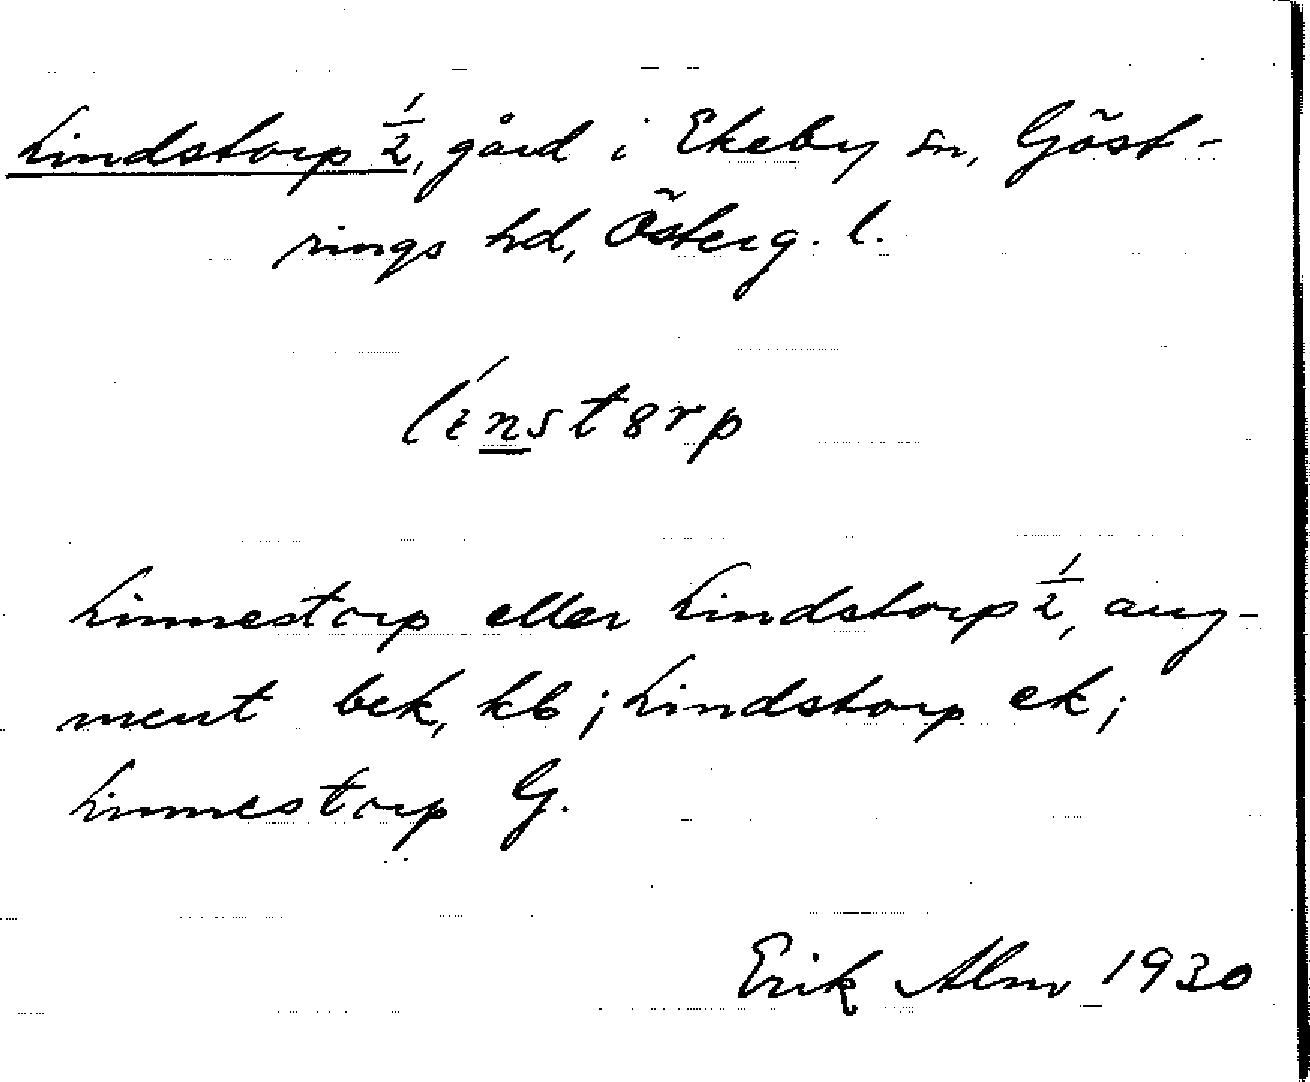 Lindstorp 1/2, gård i Ekeby sn, Göst-
rings hd, Österg. l.
Linnestorp eller Lindstorp 1/2, aug-
ment bek, kb; Lindstorp ek;
Linnestorp G.
Erik Alm 1930